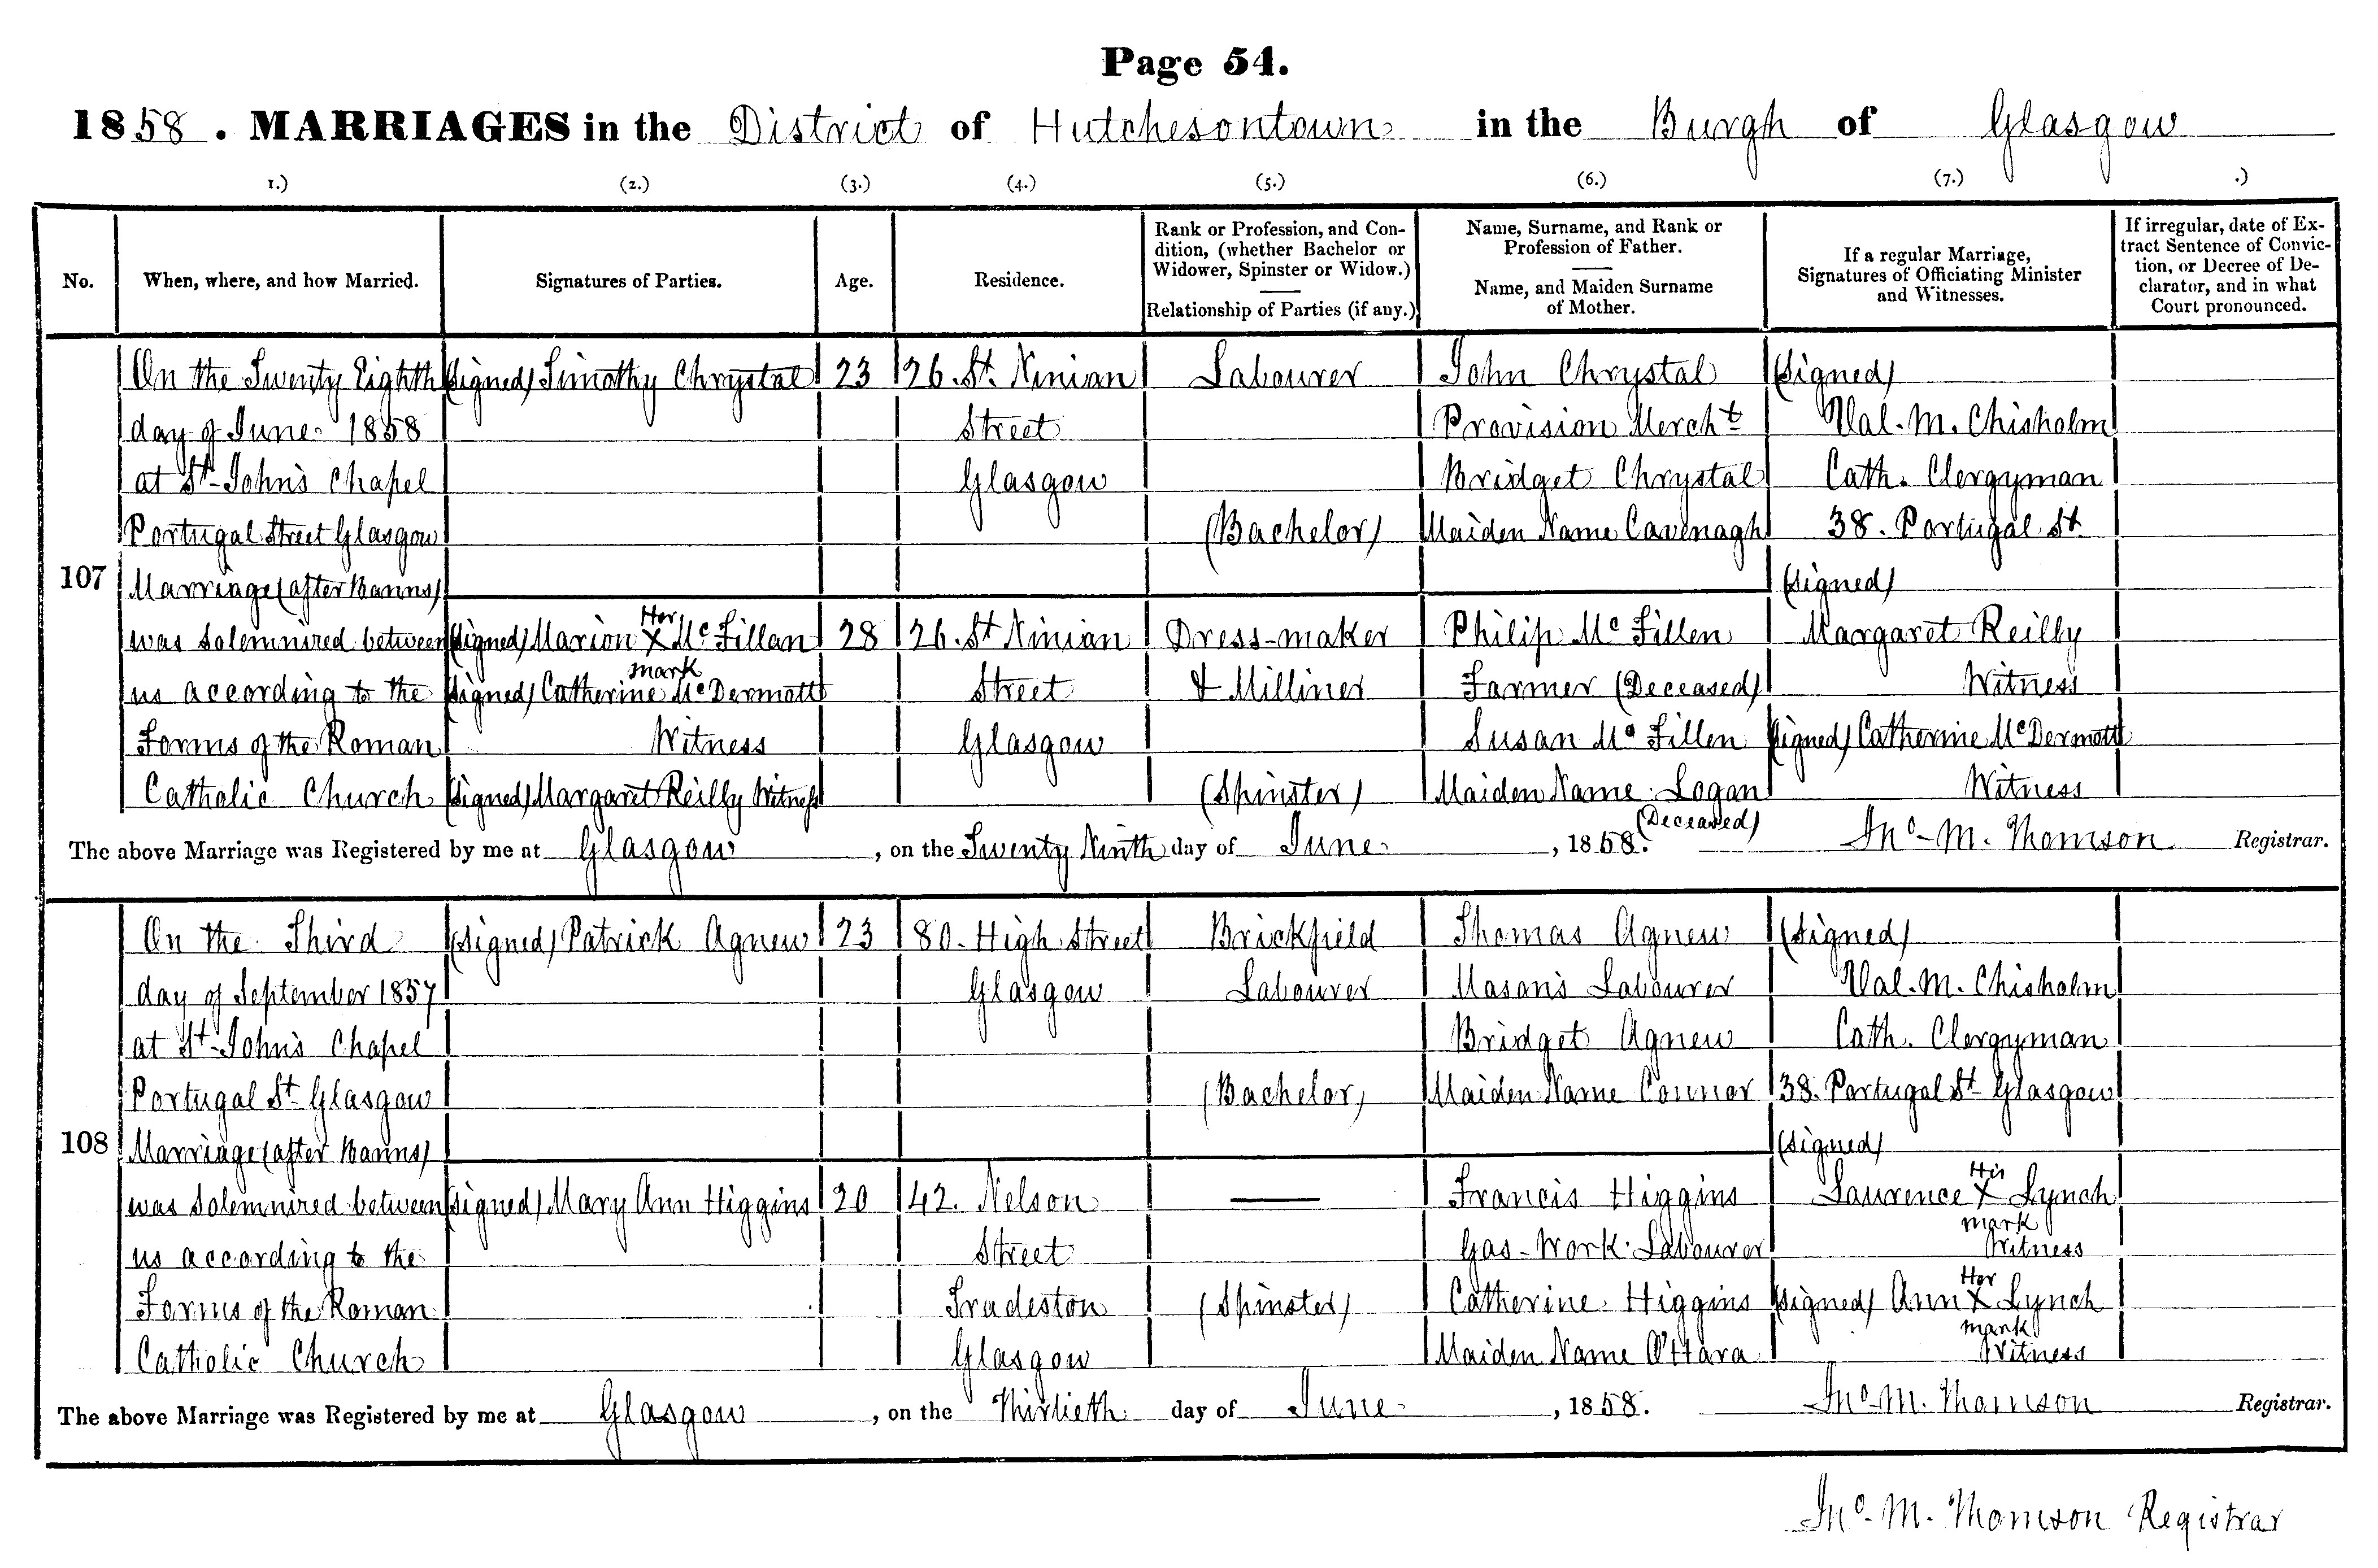 Page 54.
1858. MARRIAGES in the District of Hutchesontown in the Burgh of Glasgow
1.) (2.) (3.) (4.) (5.) (6.) (7.) .)
No.
When, where, and how Married.
Signatures of Parties.
Age.
Residence.
Rank or Profession, and Con-
dition, (whether Bachelor or
Widower, Spinster or Widow.)
Relationship of Parties (if any.)
Name, Surname, and Rank or
Profession of Father.
Name, and Maiden Surname
of Mother.
If a regular Marriage,
Signatures of Officiating Minister
and Witnesses.
If irregular, date of Ex-
tract Sentence of Convic-
tion, or Decree of De-
clarator, and in what
Court pronounced.
107
On the Twenty Eighth
day of June 1858
at St. John's Chapel
Portugal Street Glasgow
Marriage (after Banns)
was solemnized between
us according to the
Forms of the Roman
Catholic Church
(Signed) Timothy Chrystal
Her
(Signed) Marion X McFillan
mark
(Signed) Catherine McDermott
Witness
(Signed) Margaret Reilly Witness
23
28
26. St. Ninian
Street
Glasgow
26. St Ninian
Street
Glasgow
Labourer
(Bachelor)
Dress-maker
& Milliner
(Spinster)
John Chrystal
Provision Mercht
Bridget Chrystal
Maiden Name Cavenagh
Philip McFillen
Farmer (Deceased)
Susan McFillen
Maiden Name Logan
(Deceased)
(Signed)
Val. M. Chisholm
Cath. Clergyman
38. Portugal St.
(Signed)
Margaret Reilly
Witness
(Signed) Catherine McDermott
Witness
The above Marriage was Registered by me at Glasgow, on the Twenty Ninth day of June, 1858. Jno. M. Thomson Registrar.
108
On the Third
day of September 1857
at St. John's Chapel
Portugal St. Glasgow
Marriage (after Banns)
was solemnized between
us according to the
Forms of the Roman
Catholic Church
(Signed) Patrick Agnew
(Signed) Mary Ann Higgins
23
20
80. High Street
Glasgow
42. Nelson
Street
Tradeston
Glasgow
Brickfield
Labourer
(Bachelor)
(Spinster)
Thomas Agnew
Mason's Labourer
Bridget Agnew
Maiden Name Connor
Francis Higgins
Gas-Work Labourer
Catherine Higgins
Maiden Name O'Hara
(Signed)
Val. M. Chisholm
Cath. Clergyman
38. Portugal St. Glasgow
(Signed)
His
Laurence X Lynch
mark
Witness
Her
(Signed) Ann X Lynch
mark
Witness
The above Marriage was Registered by me at Glasgow, on the Thirtieth day of June, 1858. Jno. M. Thomson Registrar.
Jno. M. Thomson Registrar